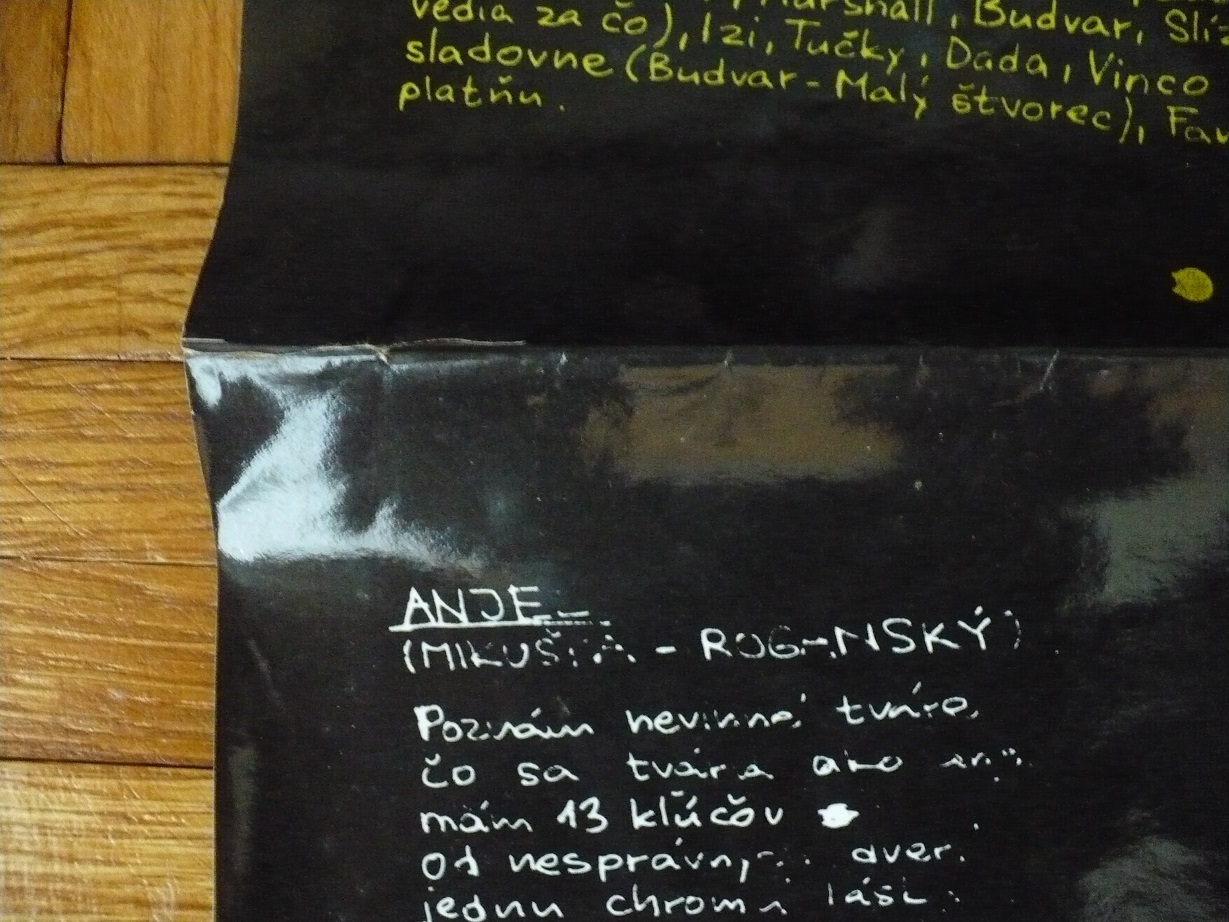 vedia za čo), Marshall, Budvar,
sladovne (Budvar-Malý štvorec),
Izi, Tučky, Dada, Vinco
platňu.
ANJE
(MIKUŠ - ROG-NSKÝ)
Poznám nevinné tváre,
čo sa tvária ako
mám 13 kľúčov
od nesprávnych dver.
jednu chromú